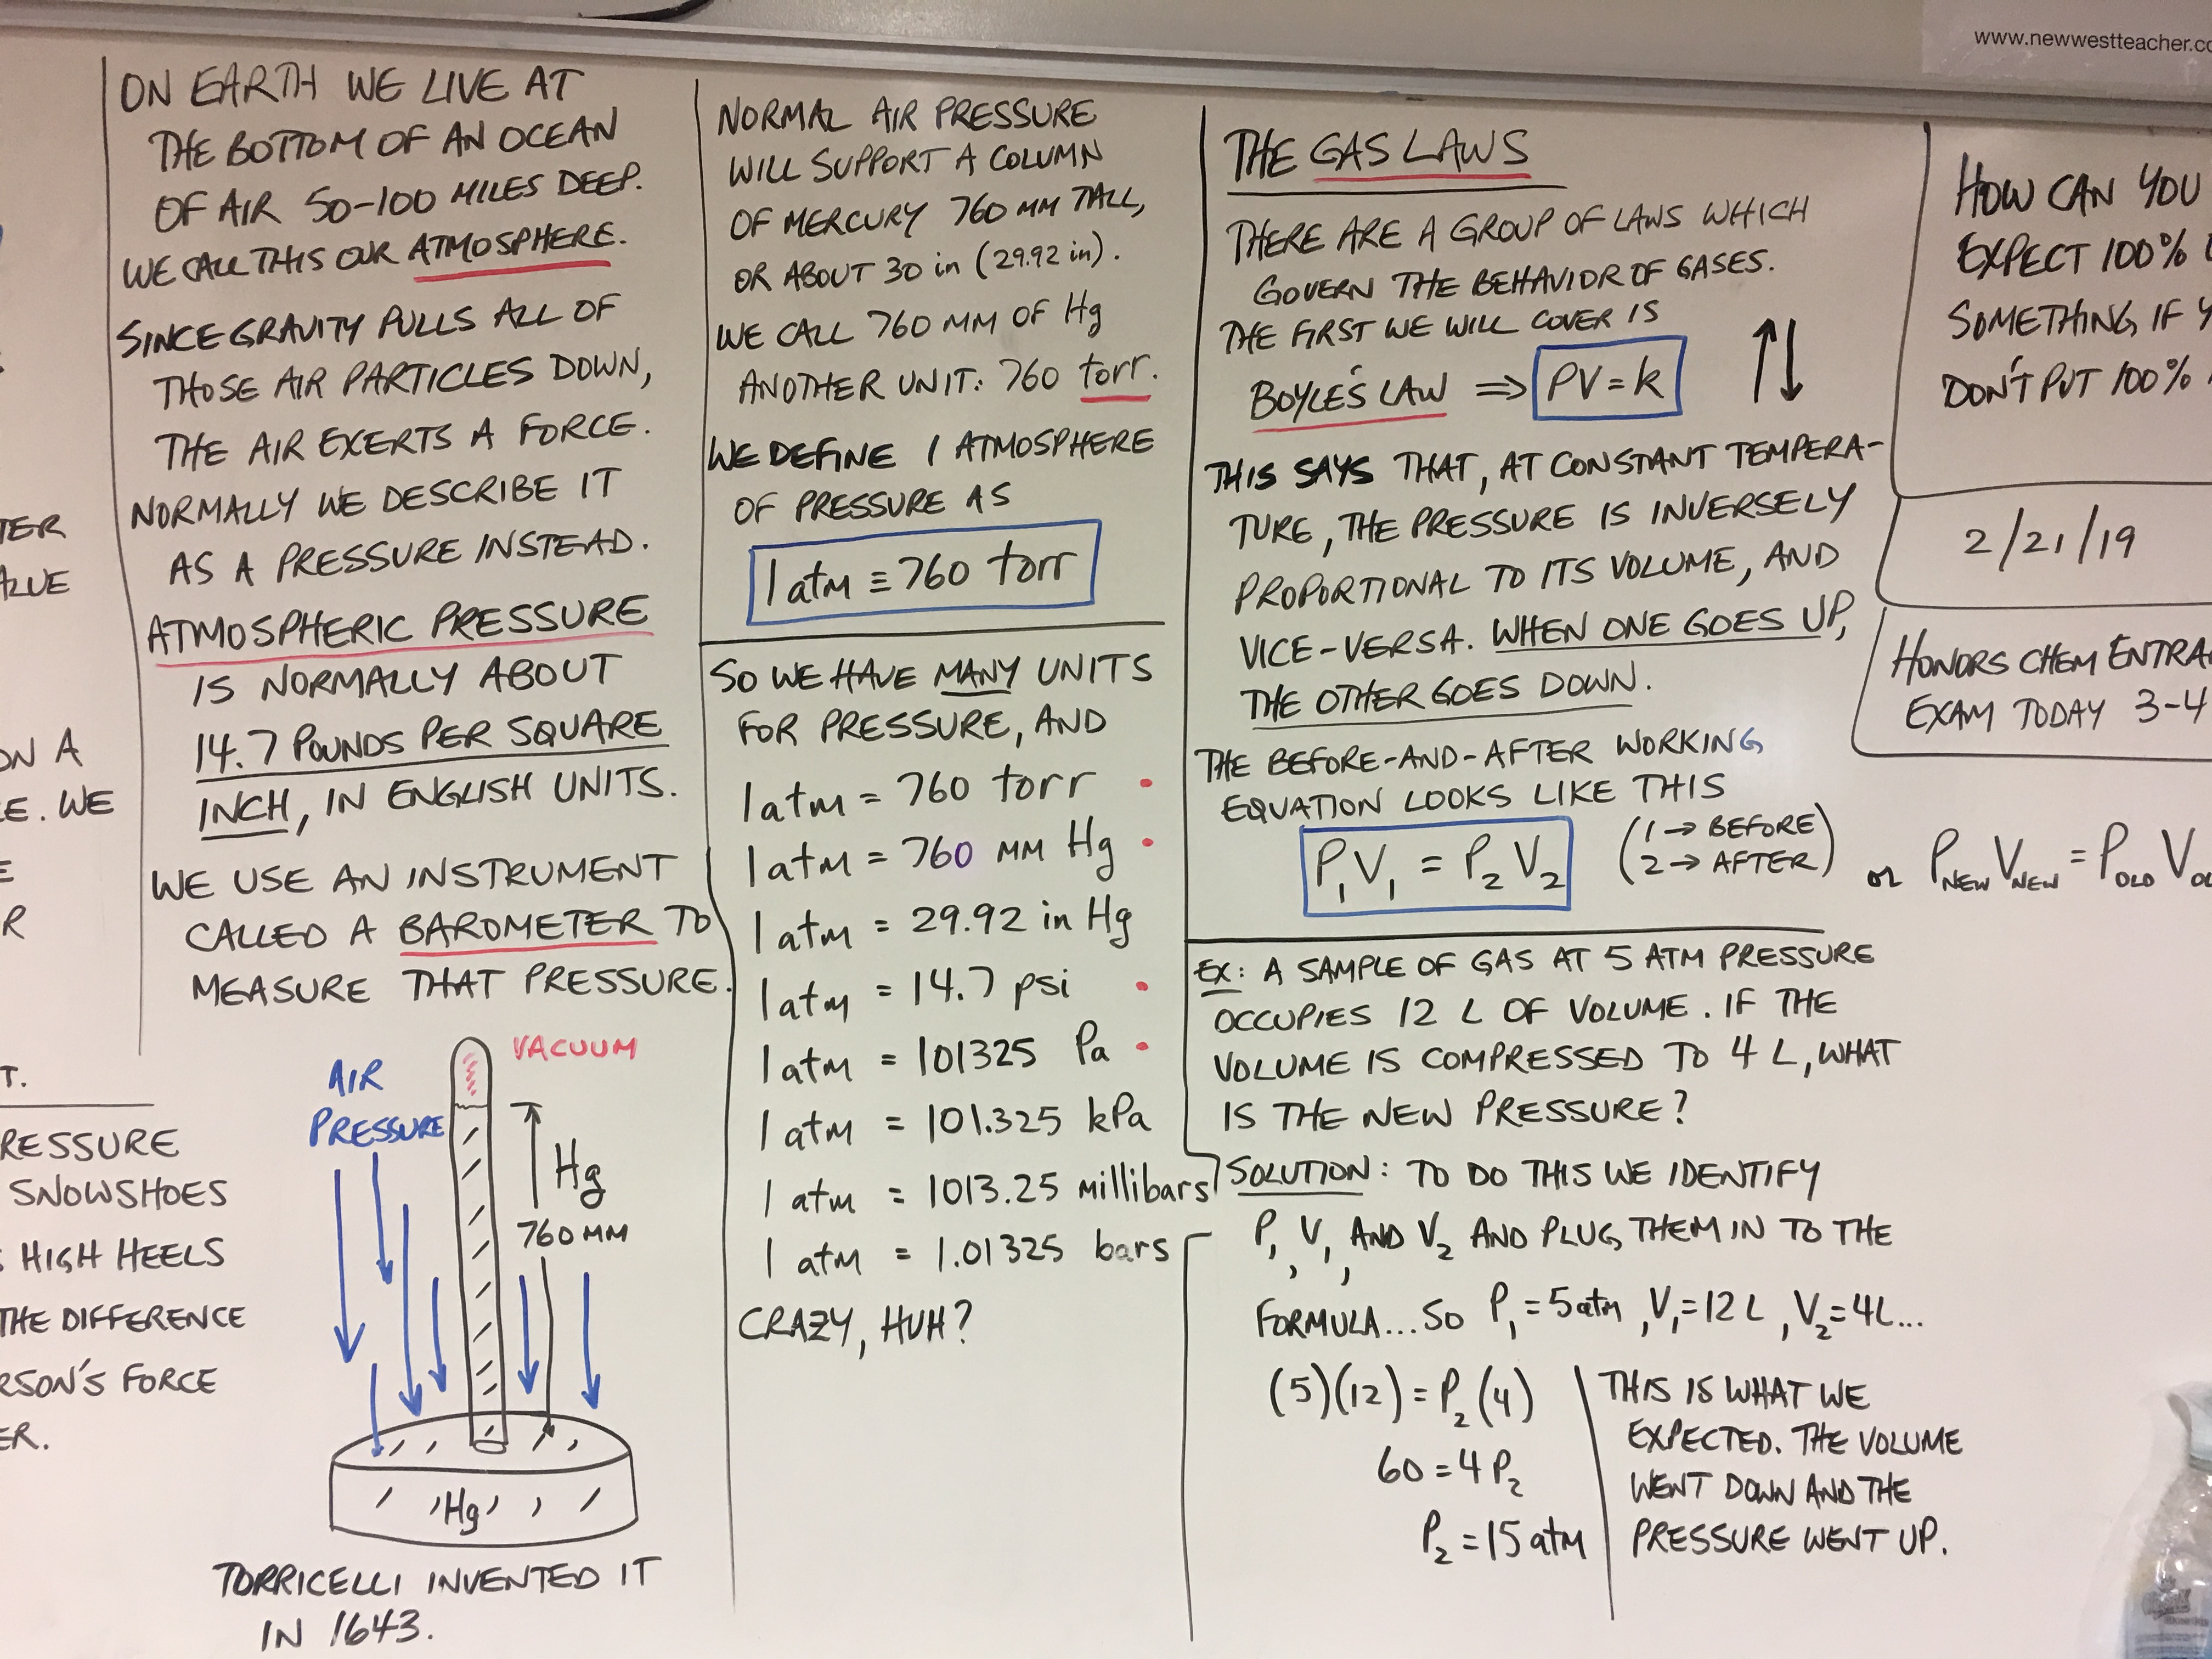 www.newwestteacher.co
ON EARTH WE LIVE AT
THE BOTTOM OF AN OCEAN
OF AIR 50-100 MILES DEEP.
WE CALL THIS OUR ATMOSPHERE.
SINCE GRAVITY PULLS ALL OF
THOSE AIR PARTICLES DOWN,
THE AIR EXERTS A FORCE.
NORMALLY WE DESCRIBE IT
AS A PRESSURE INSTEAD.
ATMOSPHERIC PRESSURE
IS NORMALLY ABOUT
14.7 POUNDS PER SQUARE
INCH, IN ENGLISH UNITS.
WE USE AN INSTRUMENT
CALLED A BAROMETER TO
MEASURE THAT PRESSURE.
VACUUM
AIR
PRESSURE
Hg
760 MM
Hg
TORRICELLI INVENTED IT
IN 1643.
TER
ALUE
ON A
E. WE
E
R
T.
RESSURE
SNOWSHOES
HIGH HEELS
THE DIFFERENCE
RSON'S FORCE
ER.
NORMAL AIR PRESSURE
WILL SUPPORT A COLUMN
OF MERCURY 760 MM TALL,
OR ABOUT 30 in (29.92 in).
WE CALL 760 MM OF Hg
ANOTHER UNIT: 760 torr.
WE DEFINE 1 ATMOSPHERE
OF PRESSURE AS
1 atm ≡ 760 torr
SO WE HAVE MANY UNITS
FOR PRESSURE, AND
1 atm = 760 torr
1 atm = 760 MM Hg
1 atm = 29.92 in Hg
1 atm = 14.7 psi
1 atm = 101325 Pa
1 atm = 101.325 kPa
1 atm = 1013.25 millibars
1 atm = 1.01325 bars
CRAZY, HUH?
THE GAS LAWS
THERE ARE A GROUP OF LAWS WHICH
GOVERN THE BEHAVIOR OF GASES.
THE FIRST WE WILL COVER IS
BOYLE'S LAW ⇒ PV = k ↑↓
THIS SAYS THAT, AT CONSTANT TEMPERA-
TURE, THE PRESSURE IS INVERSELY
PROPORTIONAL TO ITS VOLUME, AND
VICE-VERSA. WHEN ONE GOES UP,
THE OTHER GOES DOWN.
THE BEFORE-AND-AFTER WORKING
EQUATION LOOKS LIKE THIS
P₁V₁ = P₂V₂ (1 → BEFORE
2 → AFTER) or P_NEW V_NEW = P_OLD V_OL
EX: A SAMPLE OF GAS AT 5 ATM PRESSURE
OCCUPIES 12 L OF VOLUME. IF THE
VOLUME IS COMPRESSED TO 4 L, WHAT
IS THE NEW PRESSURE?
SOLUTION: TO DO THIS WE IDENTIFY
P₁, V₁, AND V₂ AND PLUG THEM IN TO THE
FORMULA... SO P₁ = 5 atm, V₁ = 12 L, V₂ = 4L...
(5)(12) = P₂(4)
60 = 4 P₂
P₂ = 15 atm
THIS IS WHAT WE
EXPECTED. THE VOLUME
WENT DOWN AND THE
PRESSURE WENT UP.
HOW CAN YOU
EXPECT 100%
SOMETHING IF Y
DON'T PUT 100%
2/21/19
HONORS CHEM ENTRA
EXAM TODAY 3-4